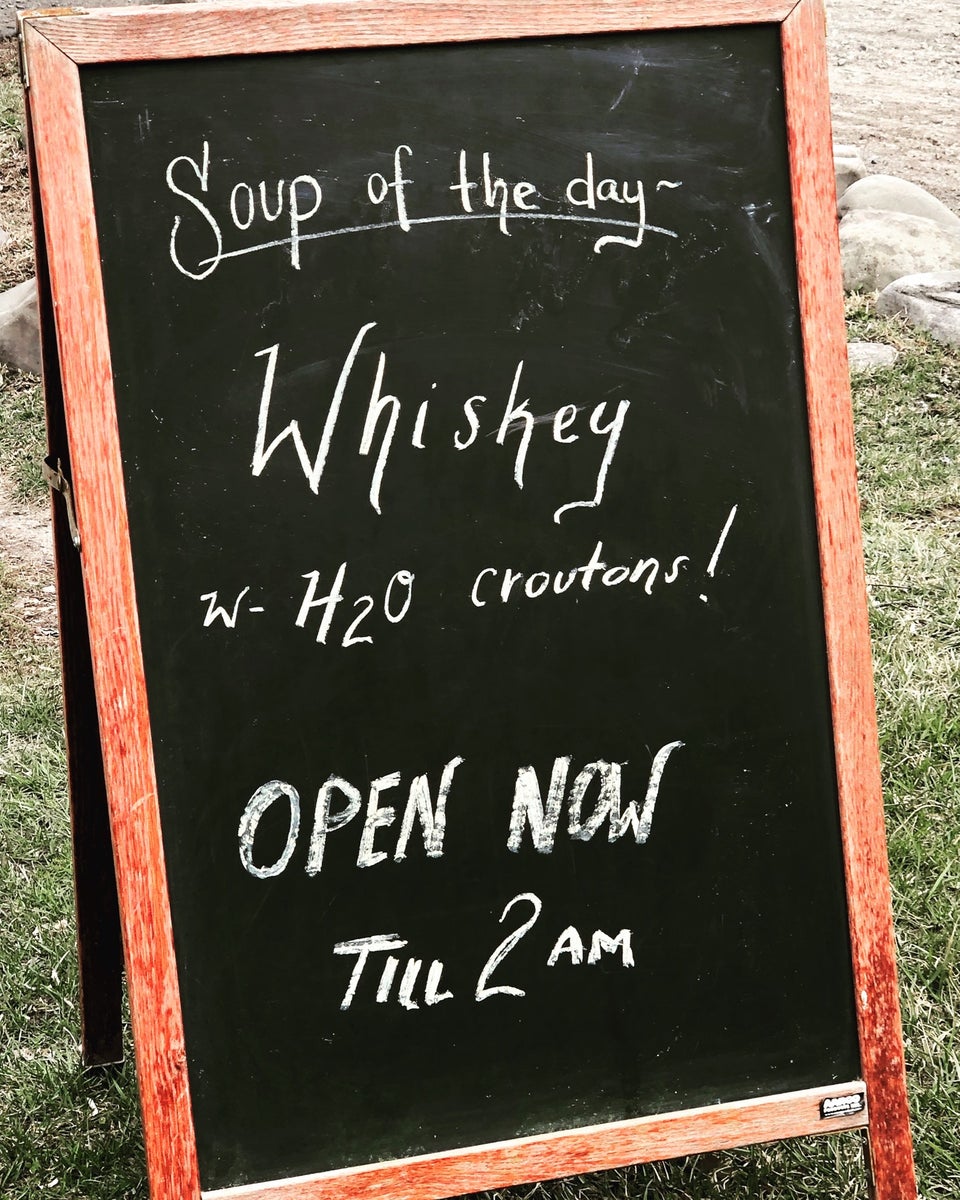 Soup of the day~
Whiskey
w- H2O croutons!
OPEN NOW
TILL 2 AM